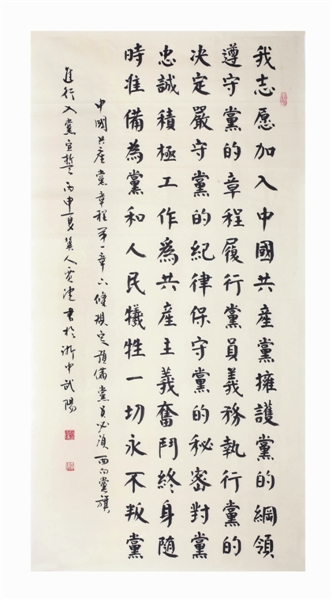 我志愿加入中國共産黨擁護黨的綱領
遵守黨的章程履行黨員義務執行黨的
决定嚴守黨的紀律保守黨的秘密對黨
忠誠積極工作為共産主義奮鬥終身隨
時准備為黨和人民犧牲一切永不叛黨
中國共産黨章程第一章六條規定預備黨員必須面向黨旗
進行入黨宣誓丙申夏書於浙中武陽